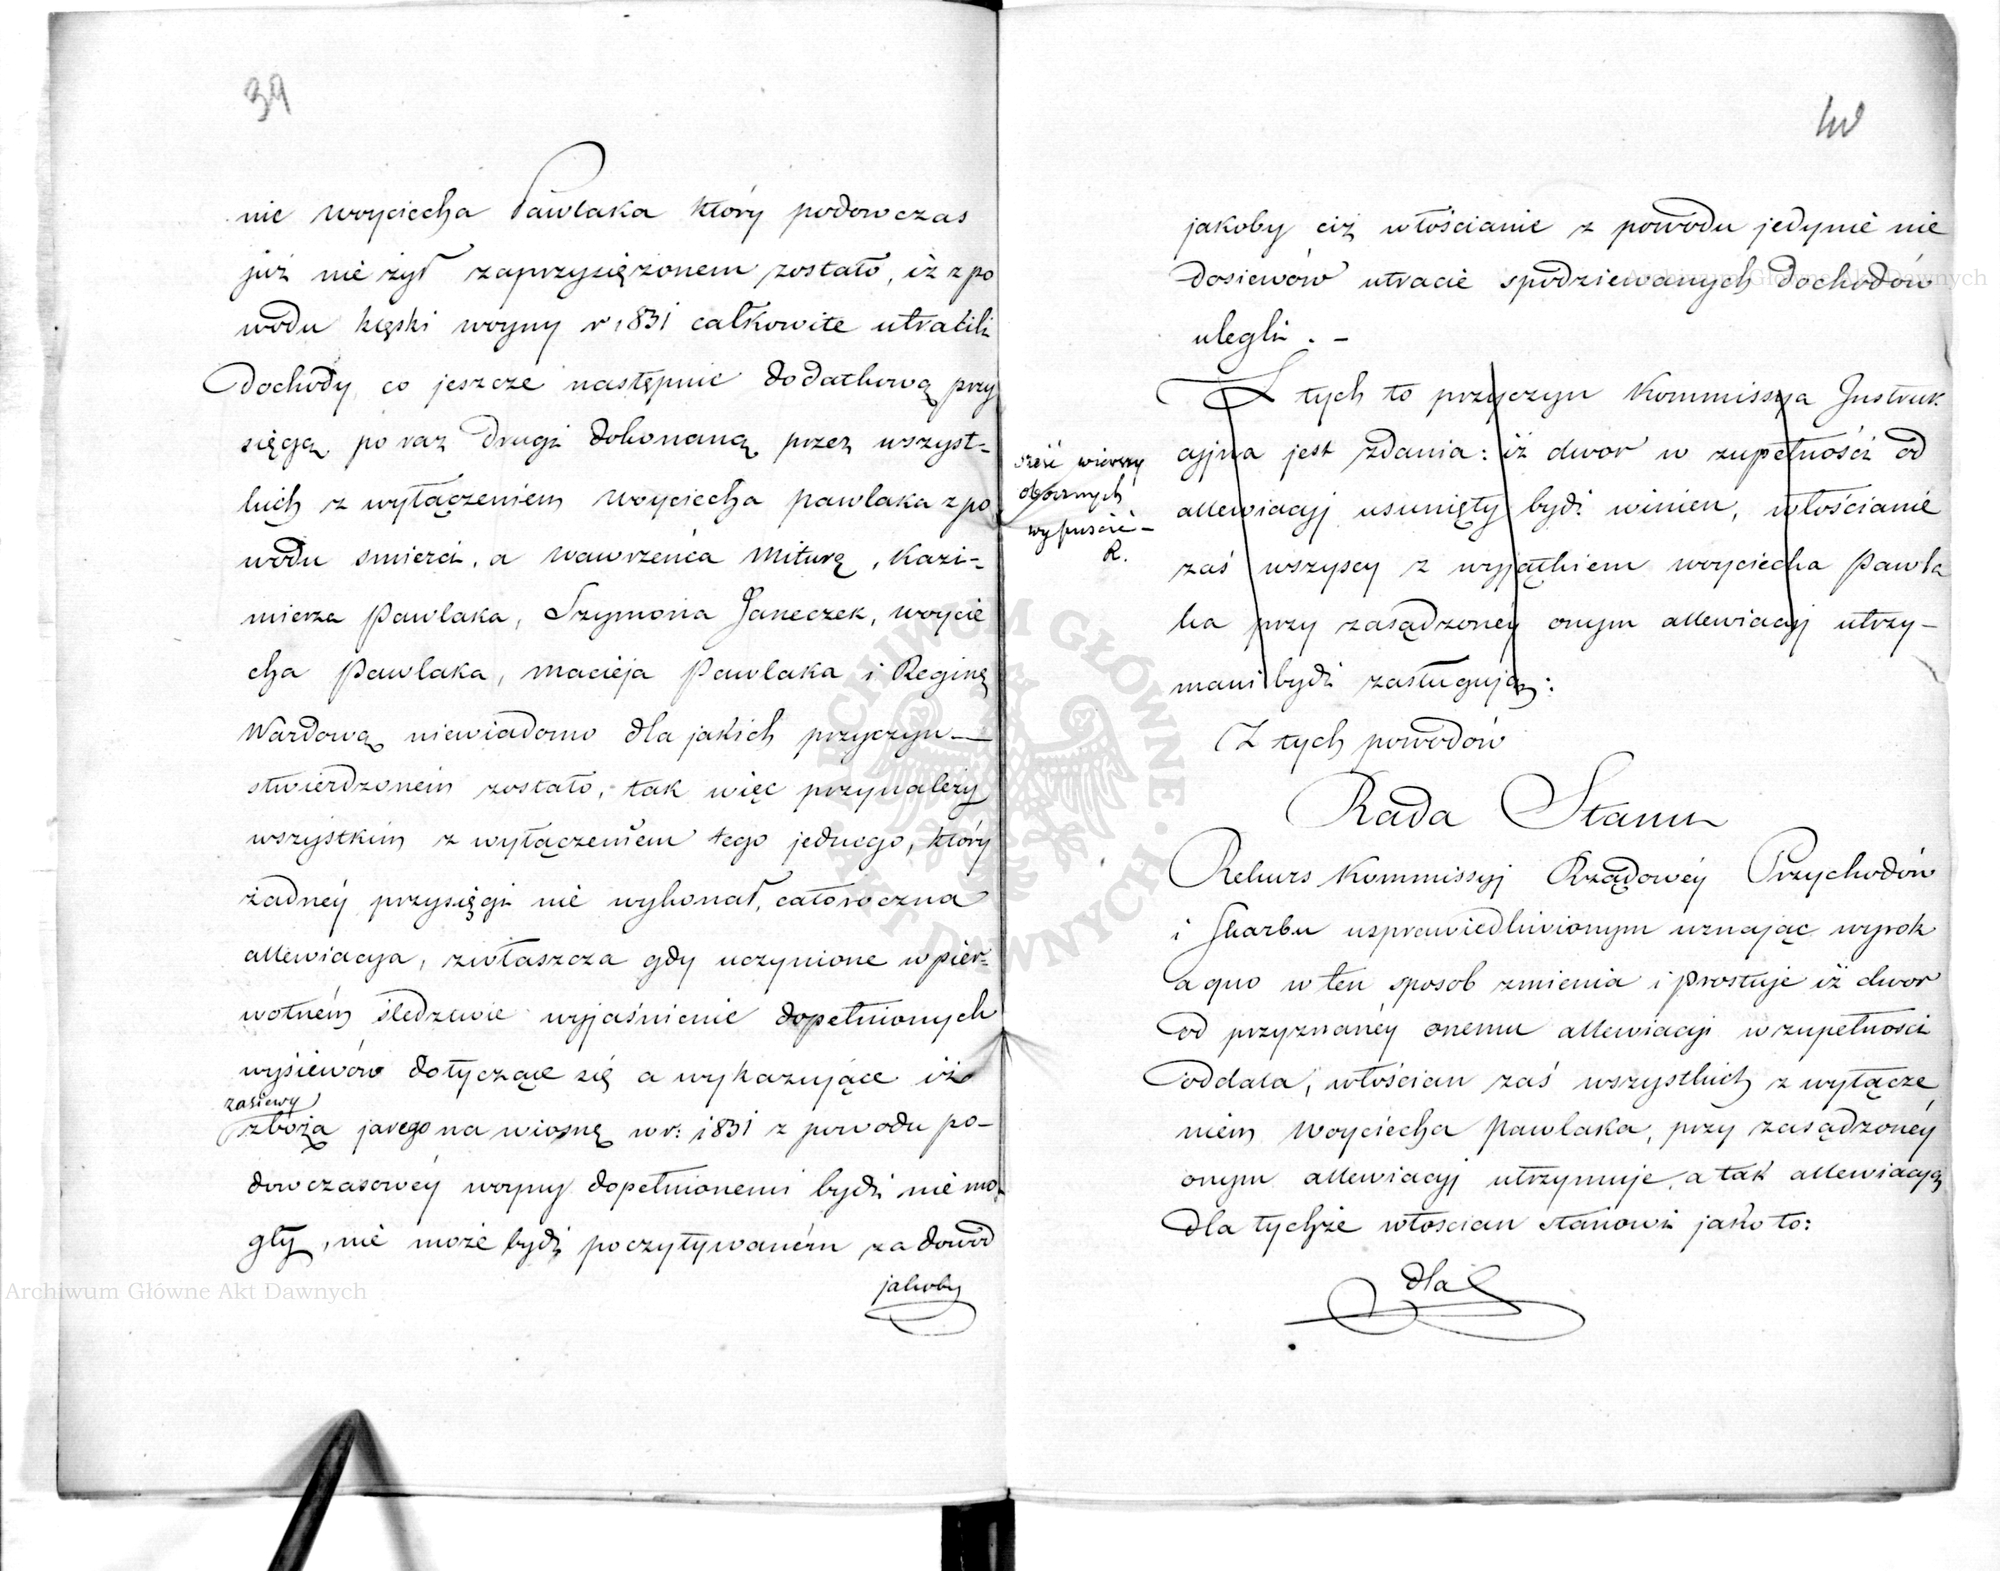 39
nie Woyciecha Pawlaka który podowczas
już nie żył zaprzysięzonem zostało, iż z po
wodu kęski woyny r. 1831 całkowite utracili
Dochody, co jeszcze następnie dodatkową przy
sięgą po raz drugi dokonaną przez wszyst-
kich z wyłączeniem Woyciecha Pawlaka z po
wodu smierci, a Wawrzeńca Miturę, Kazi-
mierza Pawlaka, Szymona Janeczek, Woycie
cha Pawlaka, Macieja Pawlaka i Reginę
Wardową niewiadomo dla jakich przyczyn —
stwierdzonem zostało, tak więc przynależy
wszystkim z wyłączeniem tego jednego, który
żadnéy przysięgi nie wykonał, całoroczna
allewiacya, zwłaszcza gdy uczynione w pier-
wotném śledzwie wyjaśnienie dopełnionych
wysiewów dotyczące się a wykazujące iż
zasiewy
zboża jarego na wiosnę w r: 1831 z powodu po-
dowczasowéy woyny dopełnionemi bydź nie mo-
gły, nie może bydź poczytywaném za dowód
jakoby
40
jakoby ciż włościanie z powodu jedynie nie
dosiewów utracie spodziewanych dochodów
ulegli. –
sześć wierszy
obocznych
wypuścić –
R.
Z tych to przyczyn Kommissya Instruk
cyjna jest zdania: iż dwor w zupełności od
allewiacyj usunięty bydź winien, włościanie
zaś wszyscy z wyjątkiem Woyciecha Pawla
ka przy zasądzonéy onym allewiacyj utrzy-
mani bydź zasługują:
Z tych powodów
Rada Stanu
Rekurs Kommissyj Rządowéy Przychodów
i Skarbu usprawiedliwionym uznając wyrok
a quo w ten sposob zmienia i prostuje iż dwor
od przyznanéy onemu allewiacyi w zupełności
oddala, włościan zaś wszystkich z wyłącze
niem Woyciecha Pawlaka, przy zasądzonéy
onym allewiacyj utrzymuje, a tak allewiacyą
dla tychże włoscian stanowi jako to:
dla
ARCHIWUM GŁÓWNE AKT DAWNYCH
Archiwum Główne Akt Dawnych
Archiwum Główne Akt Dawnych